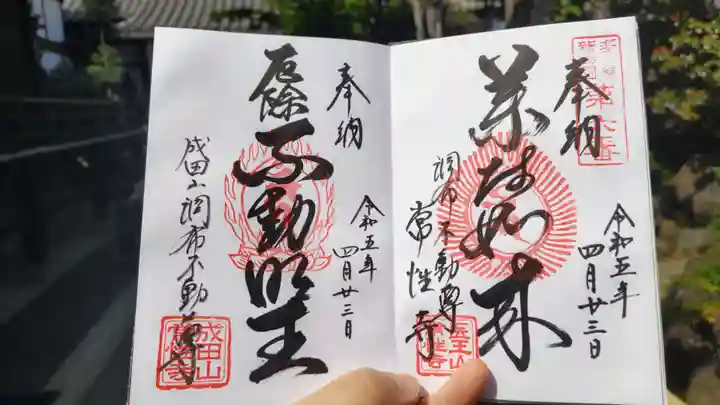 奉納
第六番
薬師如来
令和五年
四月廿三日
調布不動尊
常性寺
奉納
厄除
不動明王
令和五年
四月廿三日
成田山調布不動尊
成田山
常性寺